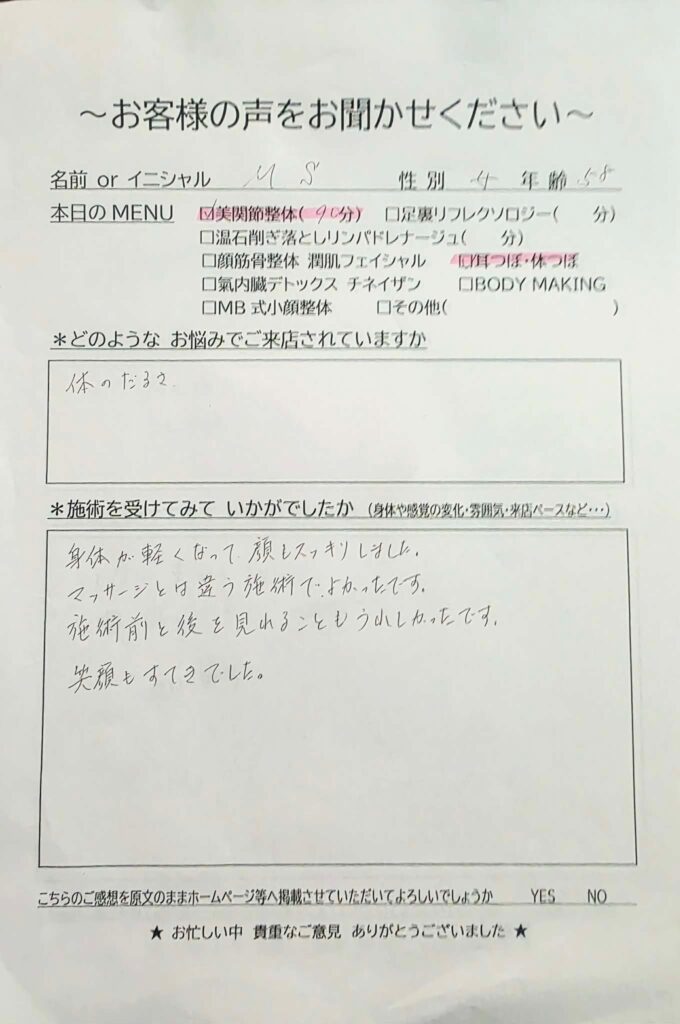 ～お客様の声をお聞かせください～
名前 or イニシャル M S 性別 女 年齢 58
本日のMENU ☑美関節整体(90分) □足裏リフレクソロジー( 分)
□温石削ぎ落としリンパドレナージュ( 分)
□顔筋骨整体 潤肌フェイシャル ☑耳つぼ・体つぼ
□氣内臓デトックス チネイザン □BODY MAKING
□MB式小顔整体 □その他( )
＊どのような お悩みでご来店されていますか
体のだるさ
＊施術を受けてみて いかがでしたか (身体や感覚の変化・雰囲気・来店ペースなど・・・)
身体が軽くなって顔もスッキリしました。
マッサージとは違う施術でよかったです。
施術前と後を見れることもうれしかったです。
笑顔もすてきでした。
こちらのご感想を原文のままホームページ等へ掲載させていただいてよろしいでしょうか YES NO
★ お忙しい中 貴重なご意見 ありがとうございました ★